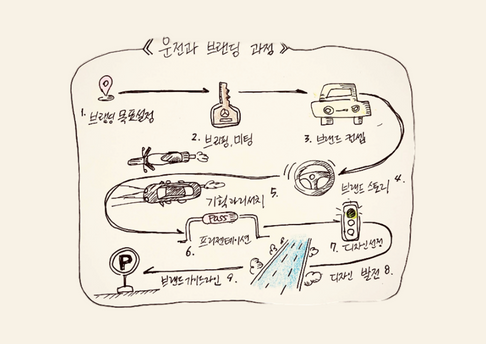 《 운전과 브랜딩 과정 》
1. 브랜딩 목표설정
2. 브리핑, 미팅
3. 브랜드 컨셉
브랜드 스토리 4.
기획 리서치 5.
Pass
6. 프리젠테이션
7. 디자인선정
디자인 발전 8.
브랜드가이드라인 9.
P